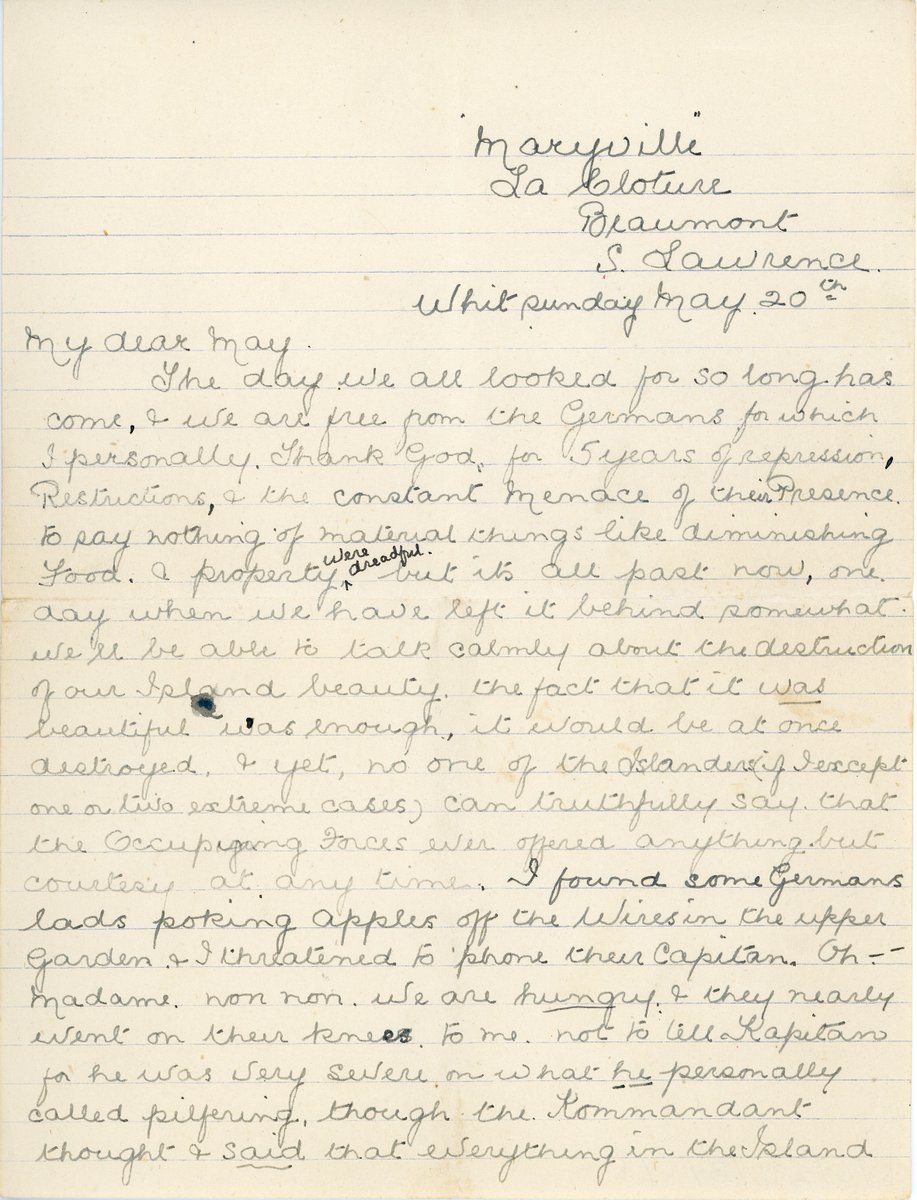 "Maryville"
La Cloture
Beaumont
S. Lawrence.
Whit sunday May 20th
My dear May.
The day we all looked for so long has
come, & we are free from the Germans for which
I personally. Thank God, for 5 years of repression,
Restrictions, & the constant Menace of their Presence.
to say nothing of material things like diminishing
Food. & property were dreadful. but its all past now, one
day when we have left it behind somewhat.
we'll be able to talk calmly about the destruction
of our Island beauty. the fact that it was
beautiful was enough, it would be at once
destroyed. & yet, no one of the Islanders (if I except
one or two extreme cases) can truthfully say that
the Occupiging Forces ever offered anything but
courtesy at any time. I found some Germans
lads poking apples off the Wires in the upper
Garden & I threatened to 'phone their Capitan. Oh --
Madame. non non. we are hungry. & they nearly
went on their knees to me. not to tell Kapitan
for he was very severe on what he personally
called pilfering, though the Kommandant
thought & said that everything in the Island